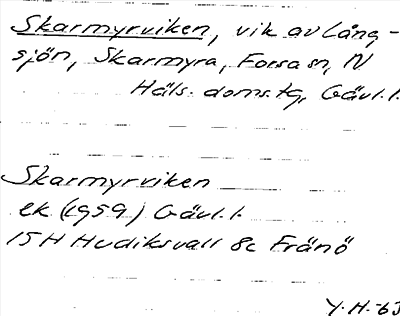 Skarmyrviken, vik av Lång-
sjön, Skarmyra, Forsa sn, N
Häls. doms.tg, Gävl. l.
Skarmyrviken
ek (1959) Gävl. l.
15H Hudiksvall 8c Fränö
Y. H. -63